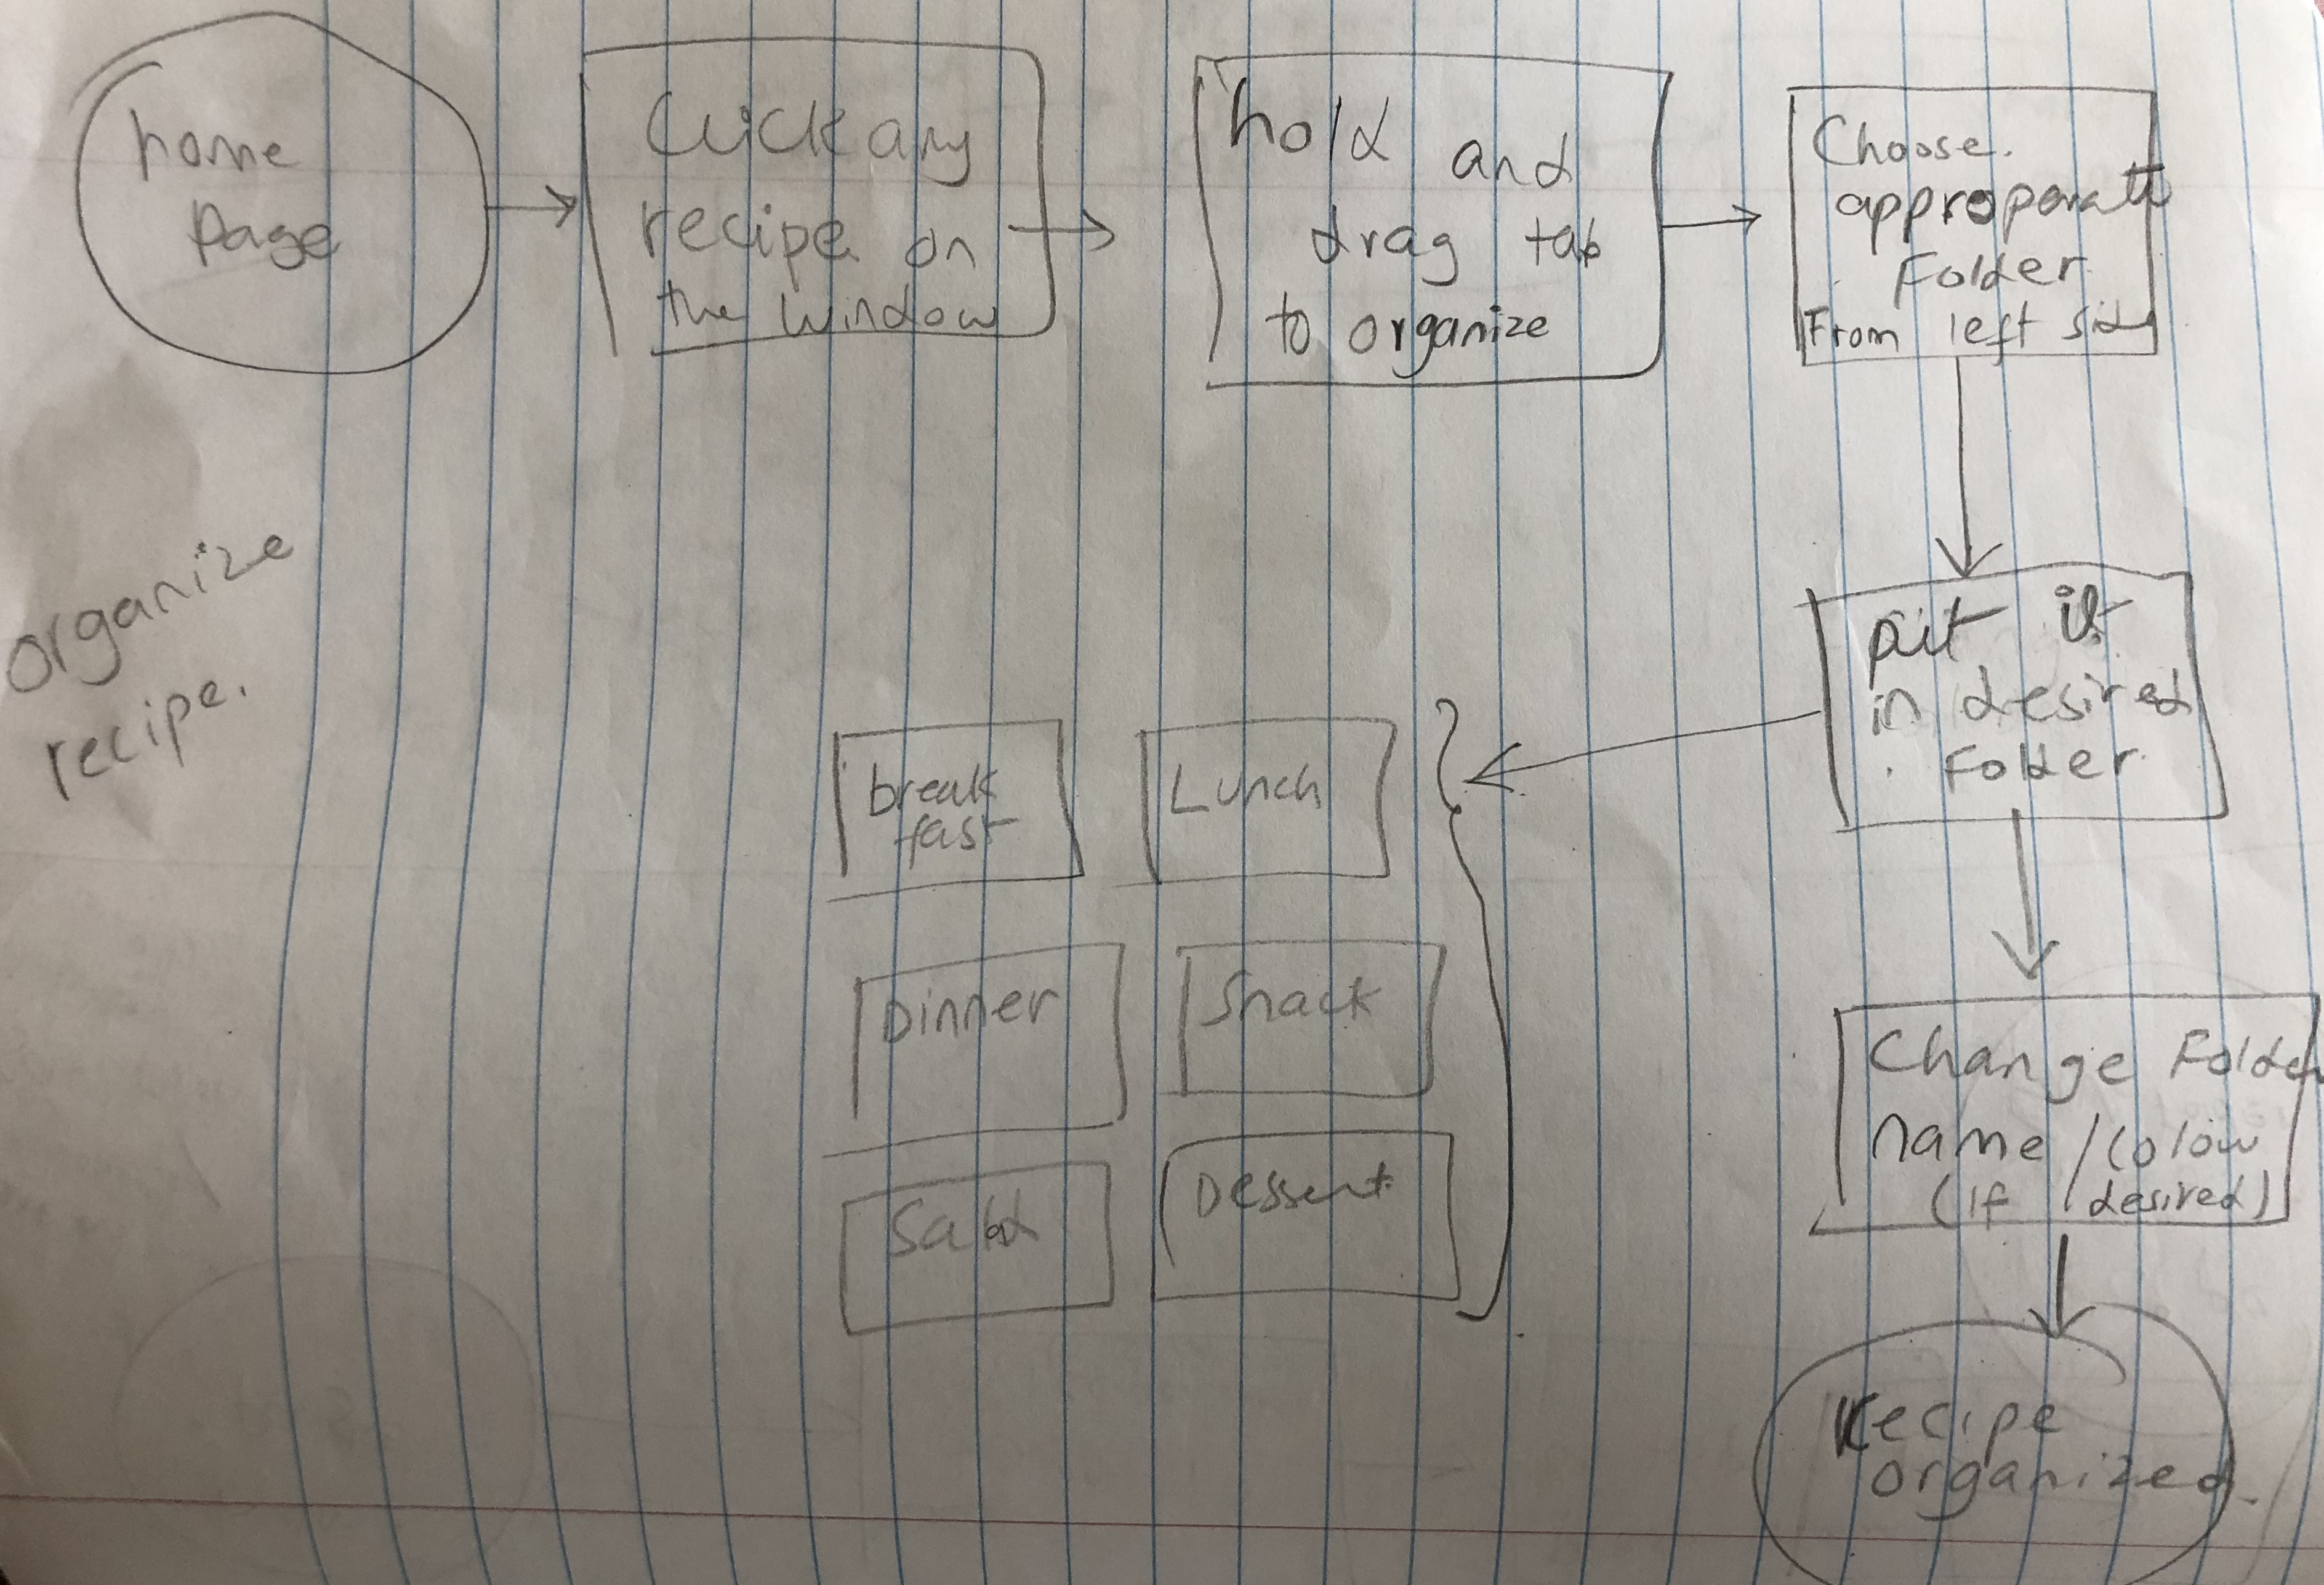 home
Page
Click any
recipe on
the window
hold and
drag tab
to organize
Choose.
approparate
Folder
From left side
organize
recipe.
put it
in desired
Folder.
break
fast
Lunch
Dinner
Snack
Salad
Dessert
Change Folder
name / Colour
(if desired)
recipe
organized.